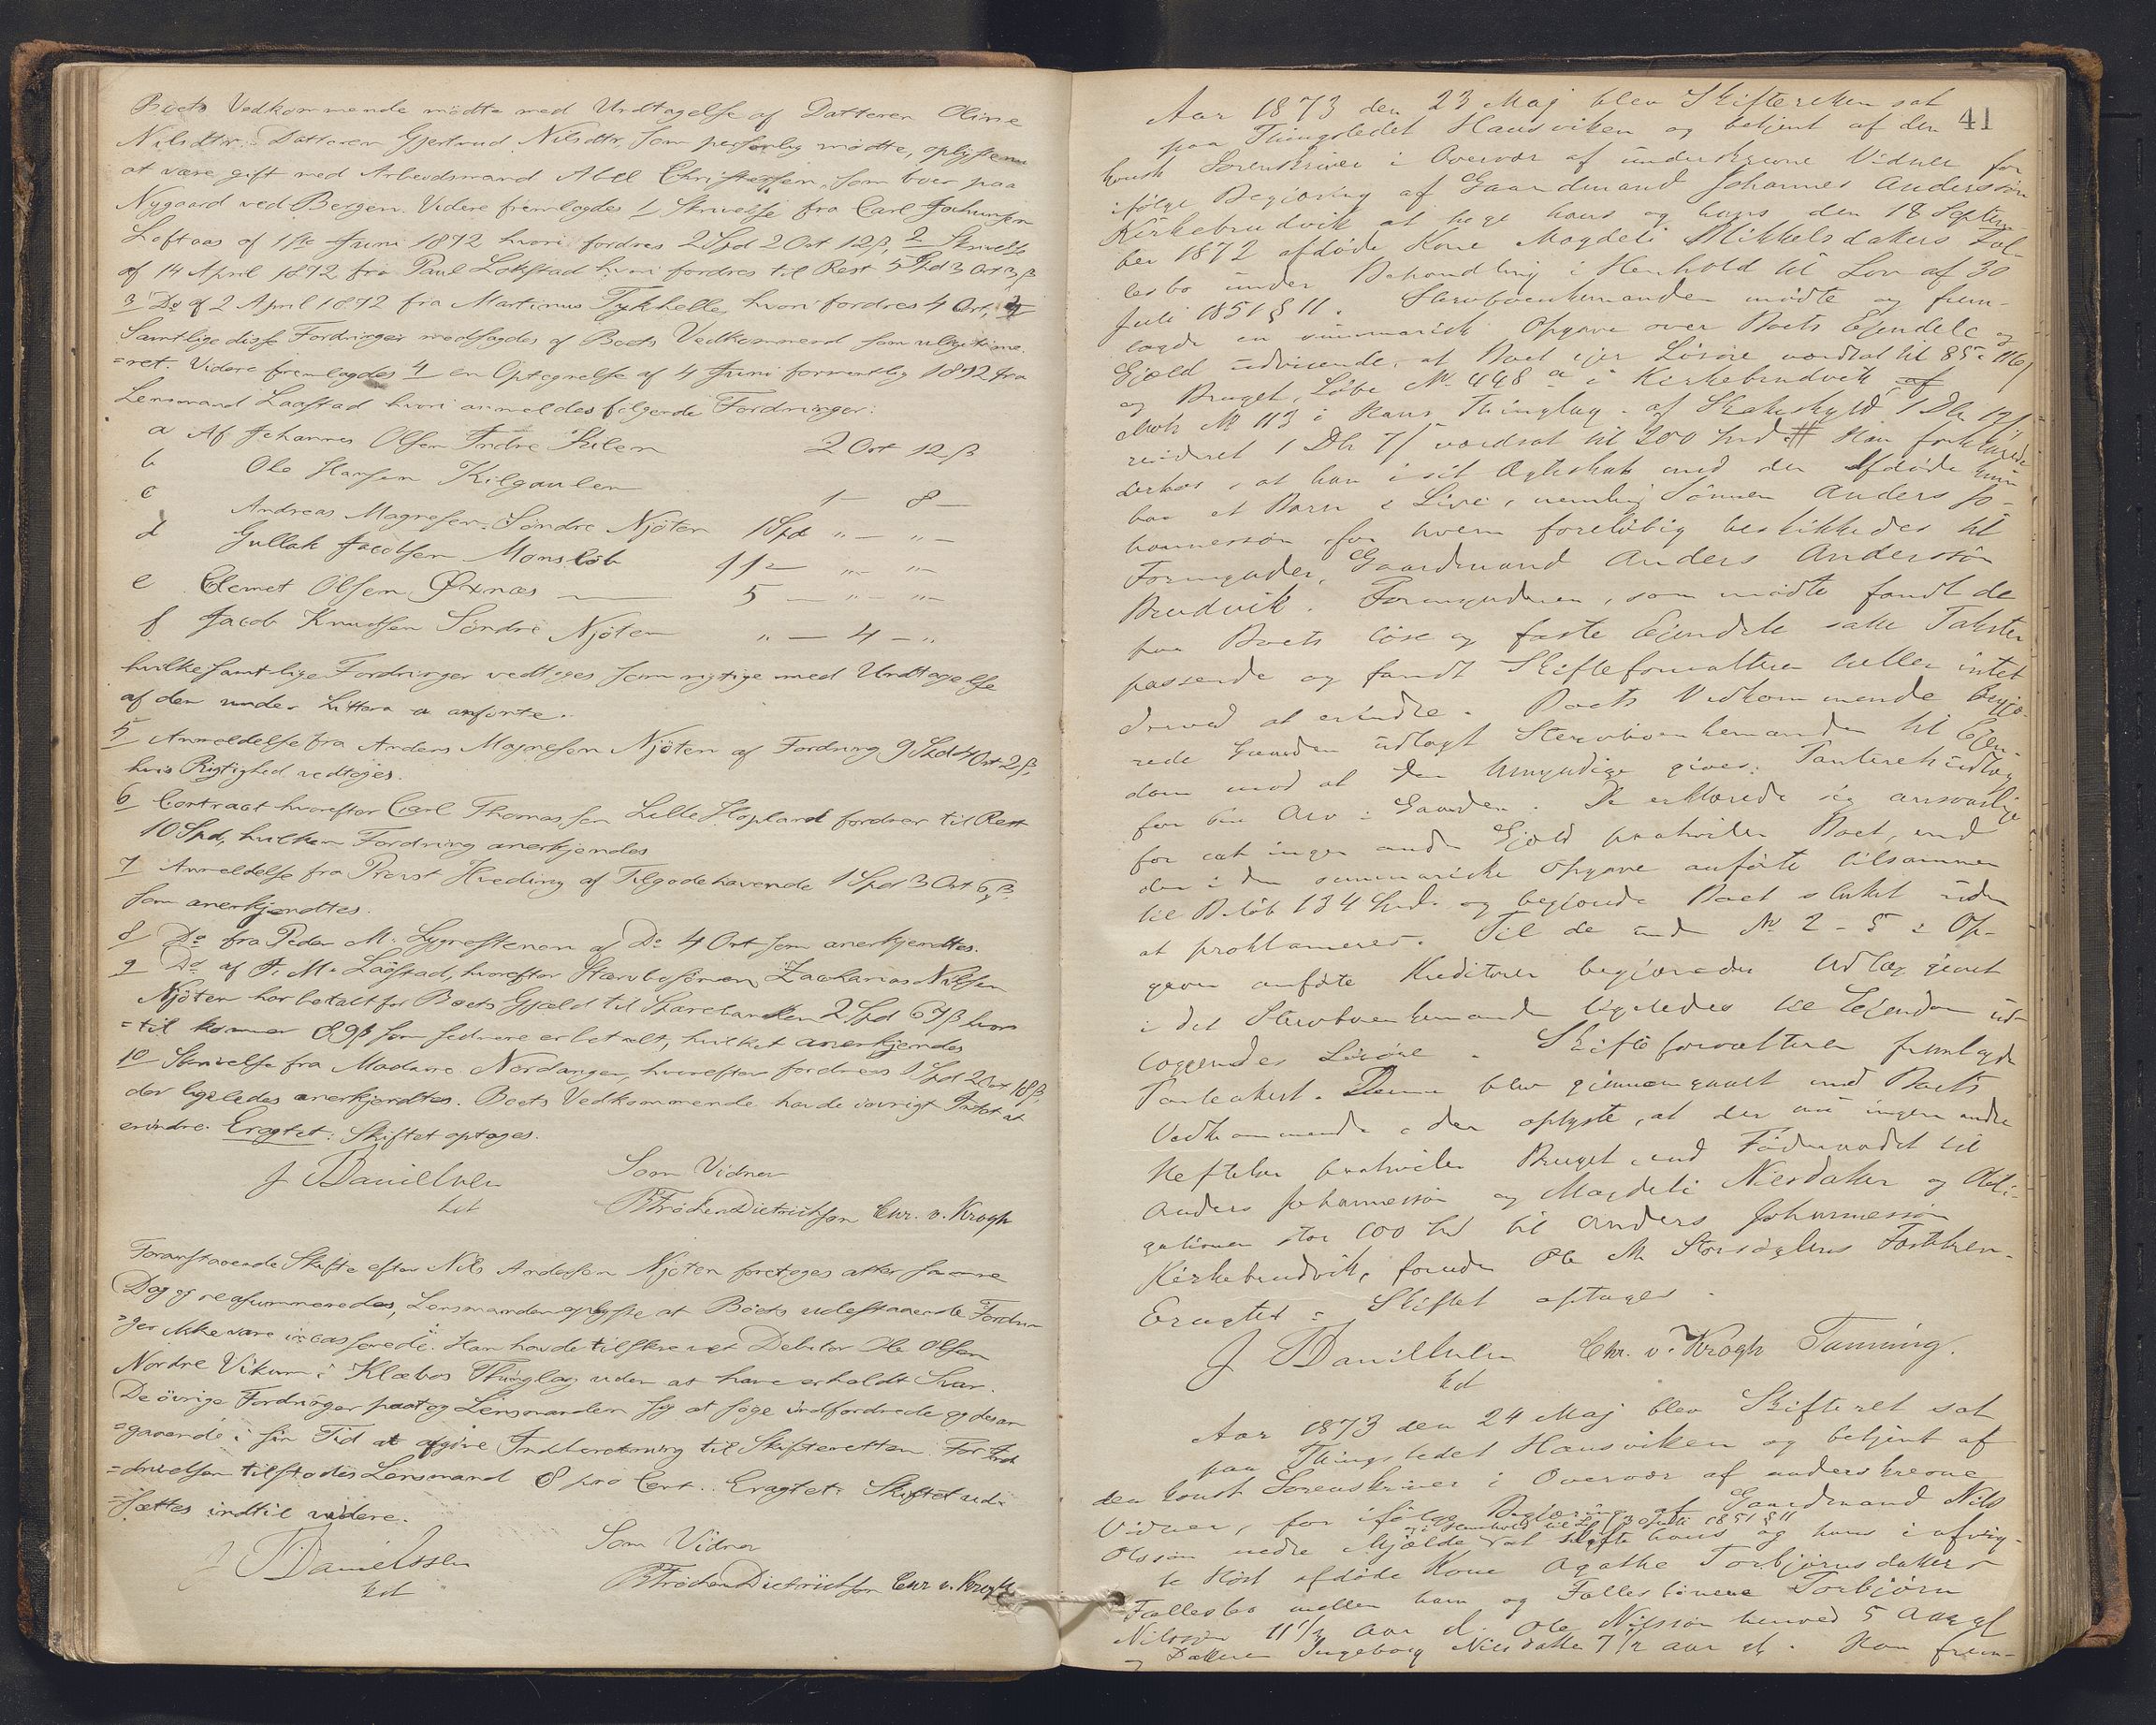 Boets Vedkommende mödte med Undtagelse af Datteren Oline
Nilsdtr. Datteren Gjertrud Nilsdtr, som personlig mödte, oplyste nu
at være gift med Arbeidsmand Abel Christensen, som boer paa
Nygaard ved Bergen. Videre fremlagdes 1 Skrivelse fra Carl
Loftaas af 1ste Juni 1872 hvori fordres 2 Spd 2 Ort 12 β, 2 Skrivelse
af 14 April 1872 fra Paul Lokstad hvori fordres til Rest 5 Spd 3 Ort 3 β
3 Do af 2 April 1872 fra Martinus Tykhelle, hvori fordres 4 Ort,
Samtlige disse Fordringer modsagdes af Boets Vedkommend som ulegitime-
=ret. Videre fremlagdes 4 en Optegnelse af 4 Juni formentlig 1872 fra
Lensmand Laastad hvori anmeldes følgende Fordringer:
a Af Johannes Olsen Indre Kilen 2 Ort 12 β
b Ole Hansen Kilgaulen 1 – 8 –
c Andreas Magnesen Søndre Njöten 1 Spd „ – „ –
d Gullak Jacobsen Monslöb 11 – „ – „ –
e Clemet Olsen Øxnæs 5 – „ – „ –
f Jacob Knudsen Söndre Njöten „ – 4 – „
hvilke samtlige Fordringer vedtoges som rigtige med Undtagelse
af den under Littera a anførte.
5 Anmeldelse fra Anders Magnesen Njöten af Fordring 9 Spd 4 Ort 2 β,
hvis Rigtighed vedtoges.
6 Contract hvorefter Carl Thomassen Lille Hopland fordrer til Rest
10 Spd, hvilken Fordring anerkjendes
7 Anmeldelse fra Provst Hveding af Tilgodehavende 1 Spd 3 Ort 6 β
som anerkjendtes.
8 Do fra Peder M. Lygrestenen af Do 4 Ort som anerkjendtes.
9 Do af A. M. Laastad, hvorefter Stervbosönnen Zacharias Nilsen
Njöten har betalt for Boets Gjæld til Sparebanken 2 Spd 67 β hvor-
=til kommer 89 β som sednere er betalt, hvilket anerkjendes
10 Skrivelse fra Madame Nordanger, hvorefter fordres 1 Spd 2 Ort 18 β,
der ligeledes anerkjendtes. Boets Vedkommende havde iövrigt Intet at
erindre. Eragtet: Skiftet optages.
J Danielssen Som Vidner
kst B Fröchen Dietrichson Chr. v. Krogh
Foranstaaende Skifte efter Nils Andersen Njöten foretoges atter samme
Dag og reasummeredes, Lensmanden oplyste at Boets udestaaende Fordrin-
=ger ikke vare incasserede. Han havde tilskrevet Debitor Ole Olsen
Nordre Vikum i Klæbos Thinglag uden at have erholdt Svar.
De övrige Fordringer paatog Lensmanden sig at søge indfordrede og desan-
=gaaende i sin Tid at afgive Indberetning til Skifteretten. For Ind-
=drivelsen tilstodes Lensmand 8 pro Cent. Eragtet: Skiftet ud-
=sættes indtil videre.
J Danielssen Som Vidner
kst B Fröchen Dietrichson Chr v. Krogh
41
Aar 1873 den 23 Maj blev Skifteretten sat
paa Thingstedet Hausviken og betjent af den
konst Sorenskriver i Overvær af underskrevne Vidner for
ifølge Begjæring af Gaardmand Johannes Anderssön
Kirkebrudvik at tage hans og hans den 18 Septem-
ber 1872 afdöde Kone Magdeli Mikkelsdatters Fæl-
lesbo under Behandling i Henhold til Lov af 30
Juli 1851 § 11. Stervboenkemanden mödte og frem-
lagde en summarisk Opgave over Boets Ejendele og
Gjæld udvisende, at Boet ejer Lösöre værdsat til 85 116/
og Bruget, Löbe No 448 a i Kirkebrudvik
Matr No 113 i Haus Thinglag af Skatteskyld 1 Dlr
revideret 1 Dlr 7/ værdsat til 200 Spd. Han forklarede
derhos, at han i sit Ægteskab med den Afdöde kun
har et Barn i Live, nemlig Sönnen Anders Jo-
hannessön for hvem foreløbig beskikkedes til
Formynder, Gaardmand Anders Anderssön
Brudvik. Formynderen, som mödte fandt de
paa Boets löse og faste Ejendele satte Takster
passende og fandt Skifteforvalteren heller intet
derved at erindre. Boets Vedkommende begjæ-
rede Gaarden udlagt Stervboenkemanden til Ejen-
dom mod at den Umyndige gives Panteretsudlæg
for sin Arv i Gaarden. De erklærede sig ansvarlige
for at ingen anden Gjæld paahviler Boet, end
den i den summariske Opgave anførte tilsammen
til Belöb 134 Spd. og begjærede Boet sluttet uden
at proklameres. Til de under No 2 - 5 i Op-
gaven anførte Kreditorer begjæredes Udlæg givet
i det Stervboenkemanden ligeledes til Ejendom ud-
læggendes Lösöre. Skifteforvalteren fremlagde
Panteattest. Denne blev gjennemgaaet med Boets
Vedkommende der oplyste, at der nu ingen andre
Heftelser paahviler Bruget end Föderaadet til
Anders Johannessön og Magdeli Nilsdatter og Obli-
gationen stor 100 Spd til Anders Johannessön
Kirkebrudvik, foruden Ole M. Storsöglens
Eragtet: Skiftet optages.
J Danielssen Chr. v. Krogh Tanning.
kst
Aar 1873 den 24 Maj blev Skifteret sat
paa Thingstedet Hausviken og betjent af
den konst Sorenskriver i Overvær af underskrevne
Vidner, for ifølge Begjæring af Gaardmand Nils
og i Henhold til Lov 30 Juli 1851 § 11
Olssön nedre Mjælde at skifte hans og hans i afvig-
te Höst afdöde Kone Agathe Torbjörnsdatters
Fællesbo mellem ham og Fællessönnerne Torbjörn
Nilssön 11 1/2 Aar gl. Ole Nilssön henved 5 Aar gl
og Datteren Ingeborg Nilsdatter 7 1/2 Aar gl. Han frem-